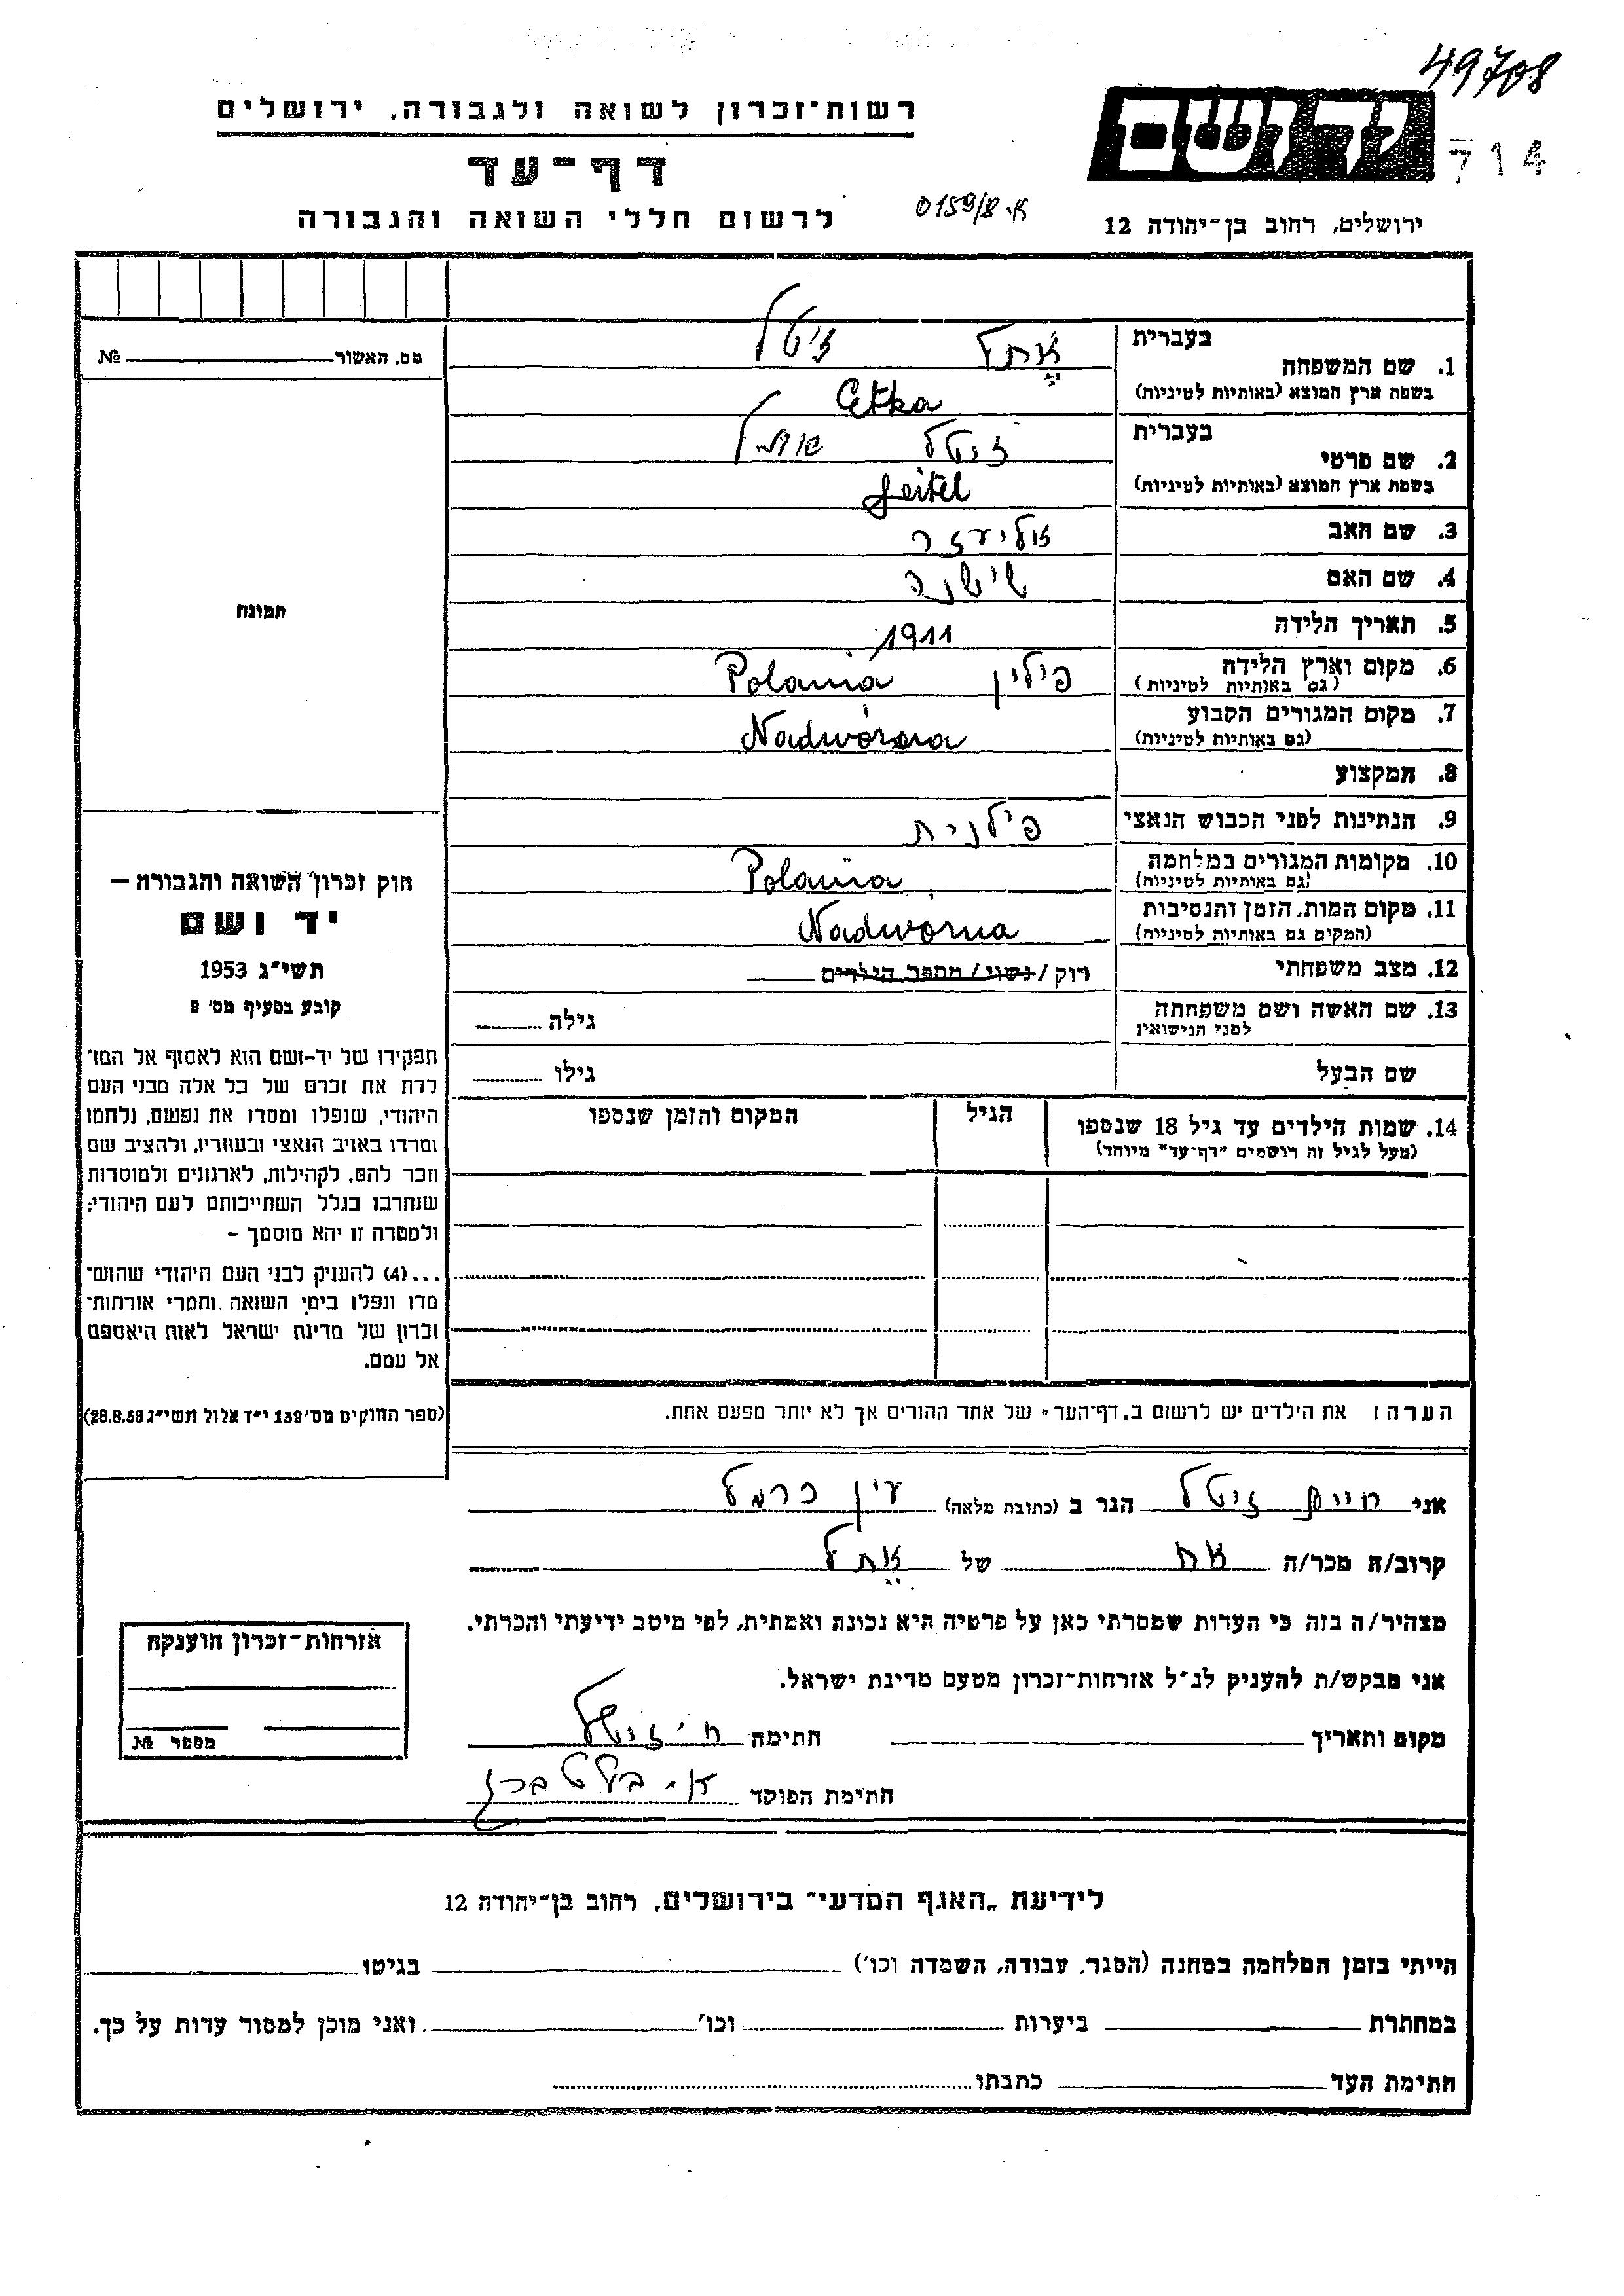 49708
714
יד ושם
רשות־זכרון לשואה ולגבורה, ירושלים
דף־עד
לרשום חללי השואה והגבורה
0159/8 א.
ירושלים, רחוב בן־יהודה 12
מס. האשור № 
1. שם המשפחה
בעברית אתל זיטל
בשפת ארץ המוצא (באותיות לטיניות) Etka
2. שם פרטי
בעברית זיטל
בשפת ארץ המוצא (באותיות לטיניות) Seitel
3. שם האב אליעזר
4. שם האם
5. תאריך הלידה 1911
6. מקום וארץ הלידה פולין Polania
(גם באותיות לטיניות)
7. מקום המגורים הקבוע Nadwórna
(גם באותיות לטיניות)
8. המקצוע
9. הנתינות לפני הכבוש הנאצי פולנית
10. מקומות המגורים במלחמה Polania
(גם באותיות לטיניות)
11. מקום המות, הזמן והנסיבות Nadwórna
(המקום גם באותיות לטיניות)
12. מצב משפחתי רוק / נשוי / מספר הילדים
13. שם האשה ושם משפחתה גילה
לפני הנישואין
שם הבעל גילו
14. שמות הילדים עד גיל 18 שנספו הגיל המקום והזמן שנספו
(מעל לגיל זה רושמים "דף־עד" מיוחד)
הערה: את הילדים יש לרשום ב„דף־העד" של אחד ההורים אך לא יותר מפעם אחת.
תמונה
חוק זכרון השואה והגבורה —
יד ושם
תשי"ג 1953
קובע בסעיף מס' 2
תפקידו של יד-ושם הוא לאסוף אל המו־
לדת את זכרם של כל אלה מבני העם
היהודי, שנפלו ומסרו את נפשם, נלחמו
ומרדו באויב הנאצי ובעוזריו, ולהציב שם
וזכר להם, לקהילות, לארגונים ולמוסדות
שנחרבו בגלל השתייכותם לעם היהודי;
ולמטרה זו יהא מוסמך –
...(4) להעניק לבני העם היהודי שהוש־
מדו ונפלו בימי השואה והמרי אזרחות־
זכרון של מדינת ישראל לאות היאספם
אל עמם.
(ספר החוקים מס' 132 י"ז אלול תשי"ג 28.8.53)
אני חיים זיטל הגר ב (כתובת מלאה) עין כרמל
קרוב/ה מכר/ה אח של אתל
מצהיר/ה בזה כי העדות שמסרתי כאן על פרטיה היא נכונה ואמתית, לפי מיטב ידיעתי והכרתי.
אני מבקש/ת להעניק לנ"ל אזרחות־זכרון מטעם מדינת ישראל.
מקום ותאריך חתימה ח' זיטל
חתימת הפוקד
אזרחות־זכרון הוענקה
מספר №
לידיעת „האגף המדעי" בירושלים, רחוב בן־יהודה 12
הייתי בזמן המלחמה במחנה (הסגר, עבודה, השמדה וכו') בגיטו
במחתרת ביערות וכו' ואני מוכן למסור עדות על כך.
חתימת העד כתבתו